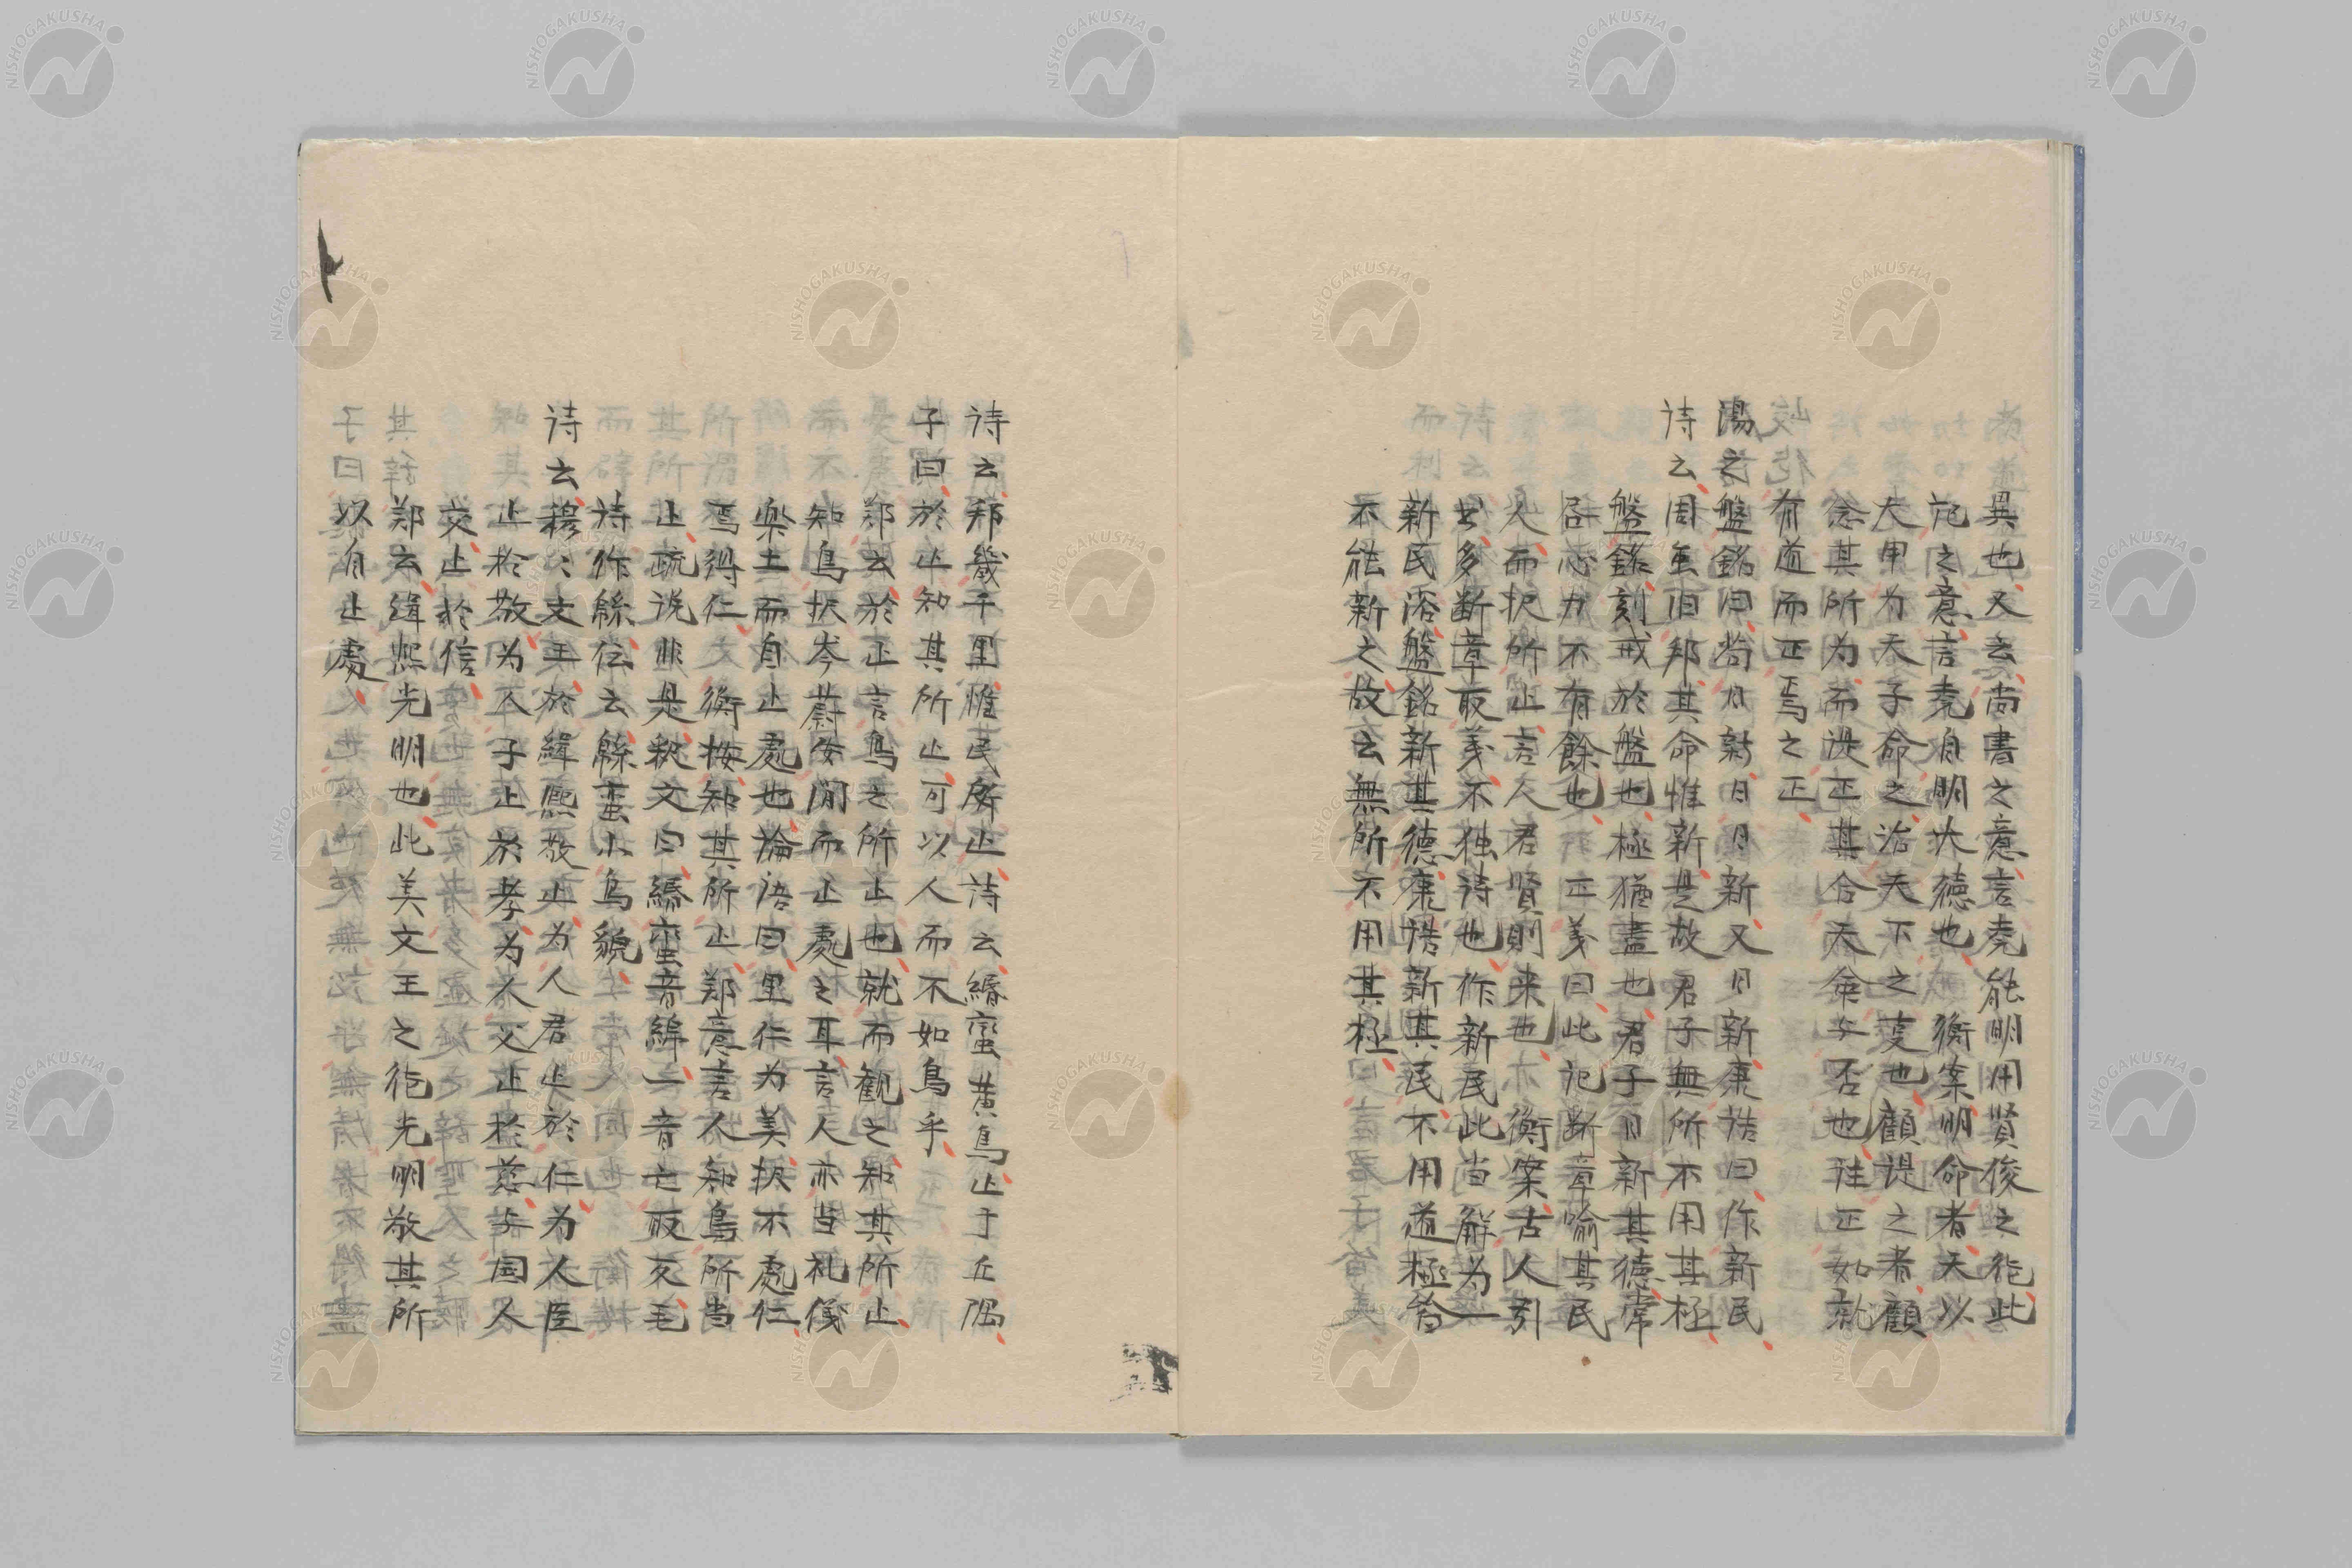 異也又云尚書之意言堯能明用賢俊之徳此
記之意言堯自明大徳也 衡案明命者天以
大甲为天子命之治天下之変也顧諟之者顧
念其所为而諟正其合天命与否也諟正如就
有道而正焉之正
湯之盤銘曰苟日新日日新又日新康誥曰作新民
诗云周虽旧邦其命惟新是故君子無所不用其極
盤銘刻戒於盤也極猶盡也君子日新其德常
尽心力不有餘也 正義曰此记断章喻其民
人而択所止言人君賢則来也 衡案古人引
书多断章取義不独诗也作新民此当解为一
新民浴盤銘新其德康誥新其民不用道極皆
不能新之故云無所不用其極
诗云邦畿千里惟民所止诗云緡蛮黄鳥止于丘隅
子曰於止知其所止可以人而不如鳥乎
郑云於止言鳥之所止也就而観之知其所止
知鳥択岑蔚安閒而止處之耳言人亦当礼儀
楽土而自止處也論语曰里仁为美択不處仁
焉得仁 衡按知其所止郑意言人知鳥所当
止疏说非是釈文曰緡蛮音緜一音亡取反毛
诗作緜伝云緜蛮小鸟貌
诗云穆〻文王於緝熙敬止为人君止於仁为人臣
止於敬为人子止於孝为人父止於慈与国人
交止於信
郑云緝熙光明也此美文王之徳光明敬其所
以自止處
NISHOGAKUSHA